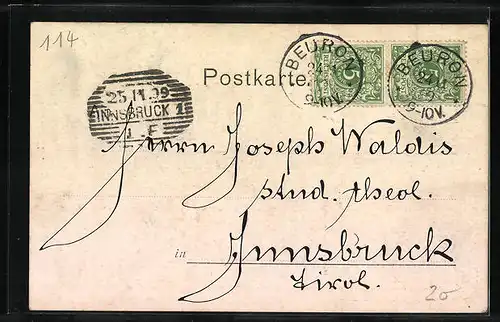 114
BEURON
9-10V.
BEURON
9-10V.
5
Postkarte
25 11.99
INNSBRUCK 1
Herrn Joseph Waldis
stud. theol.
in Innsbruck
Tirol.